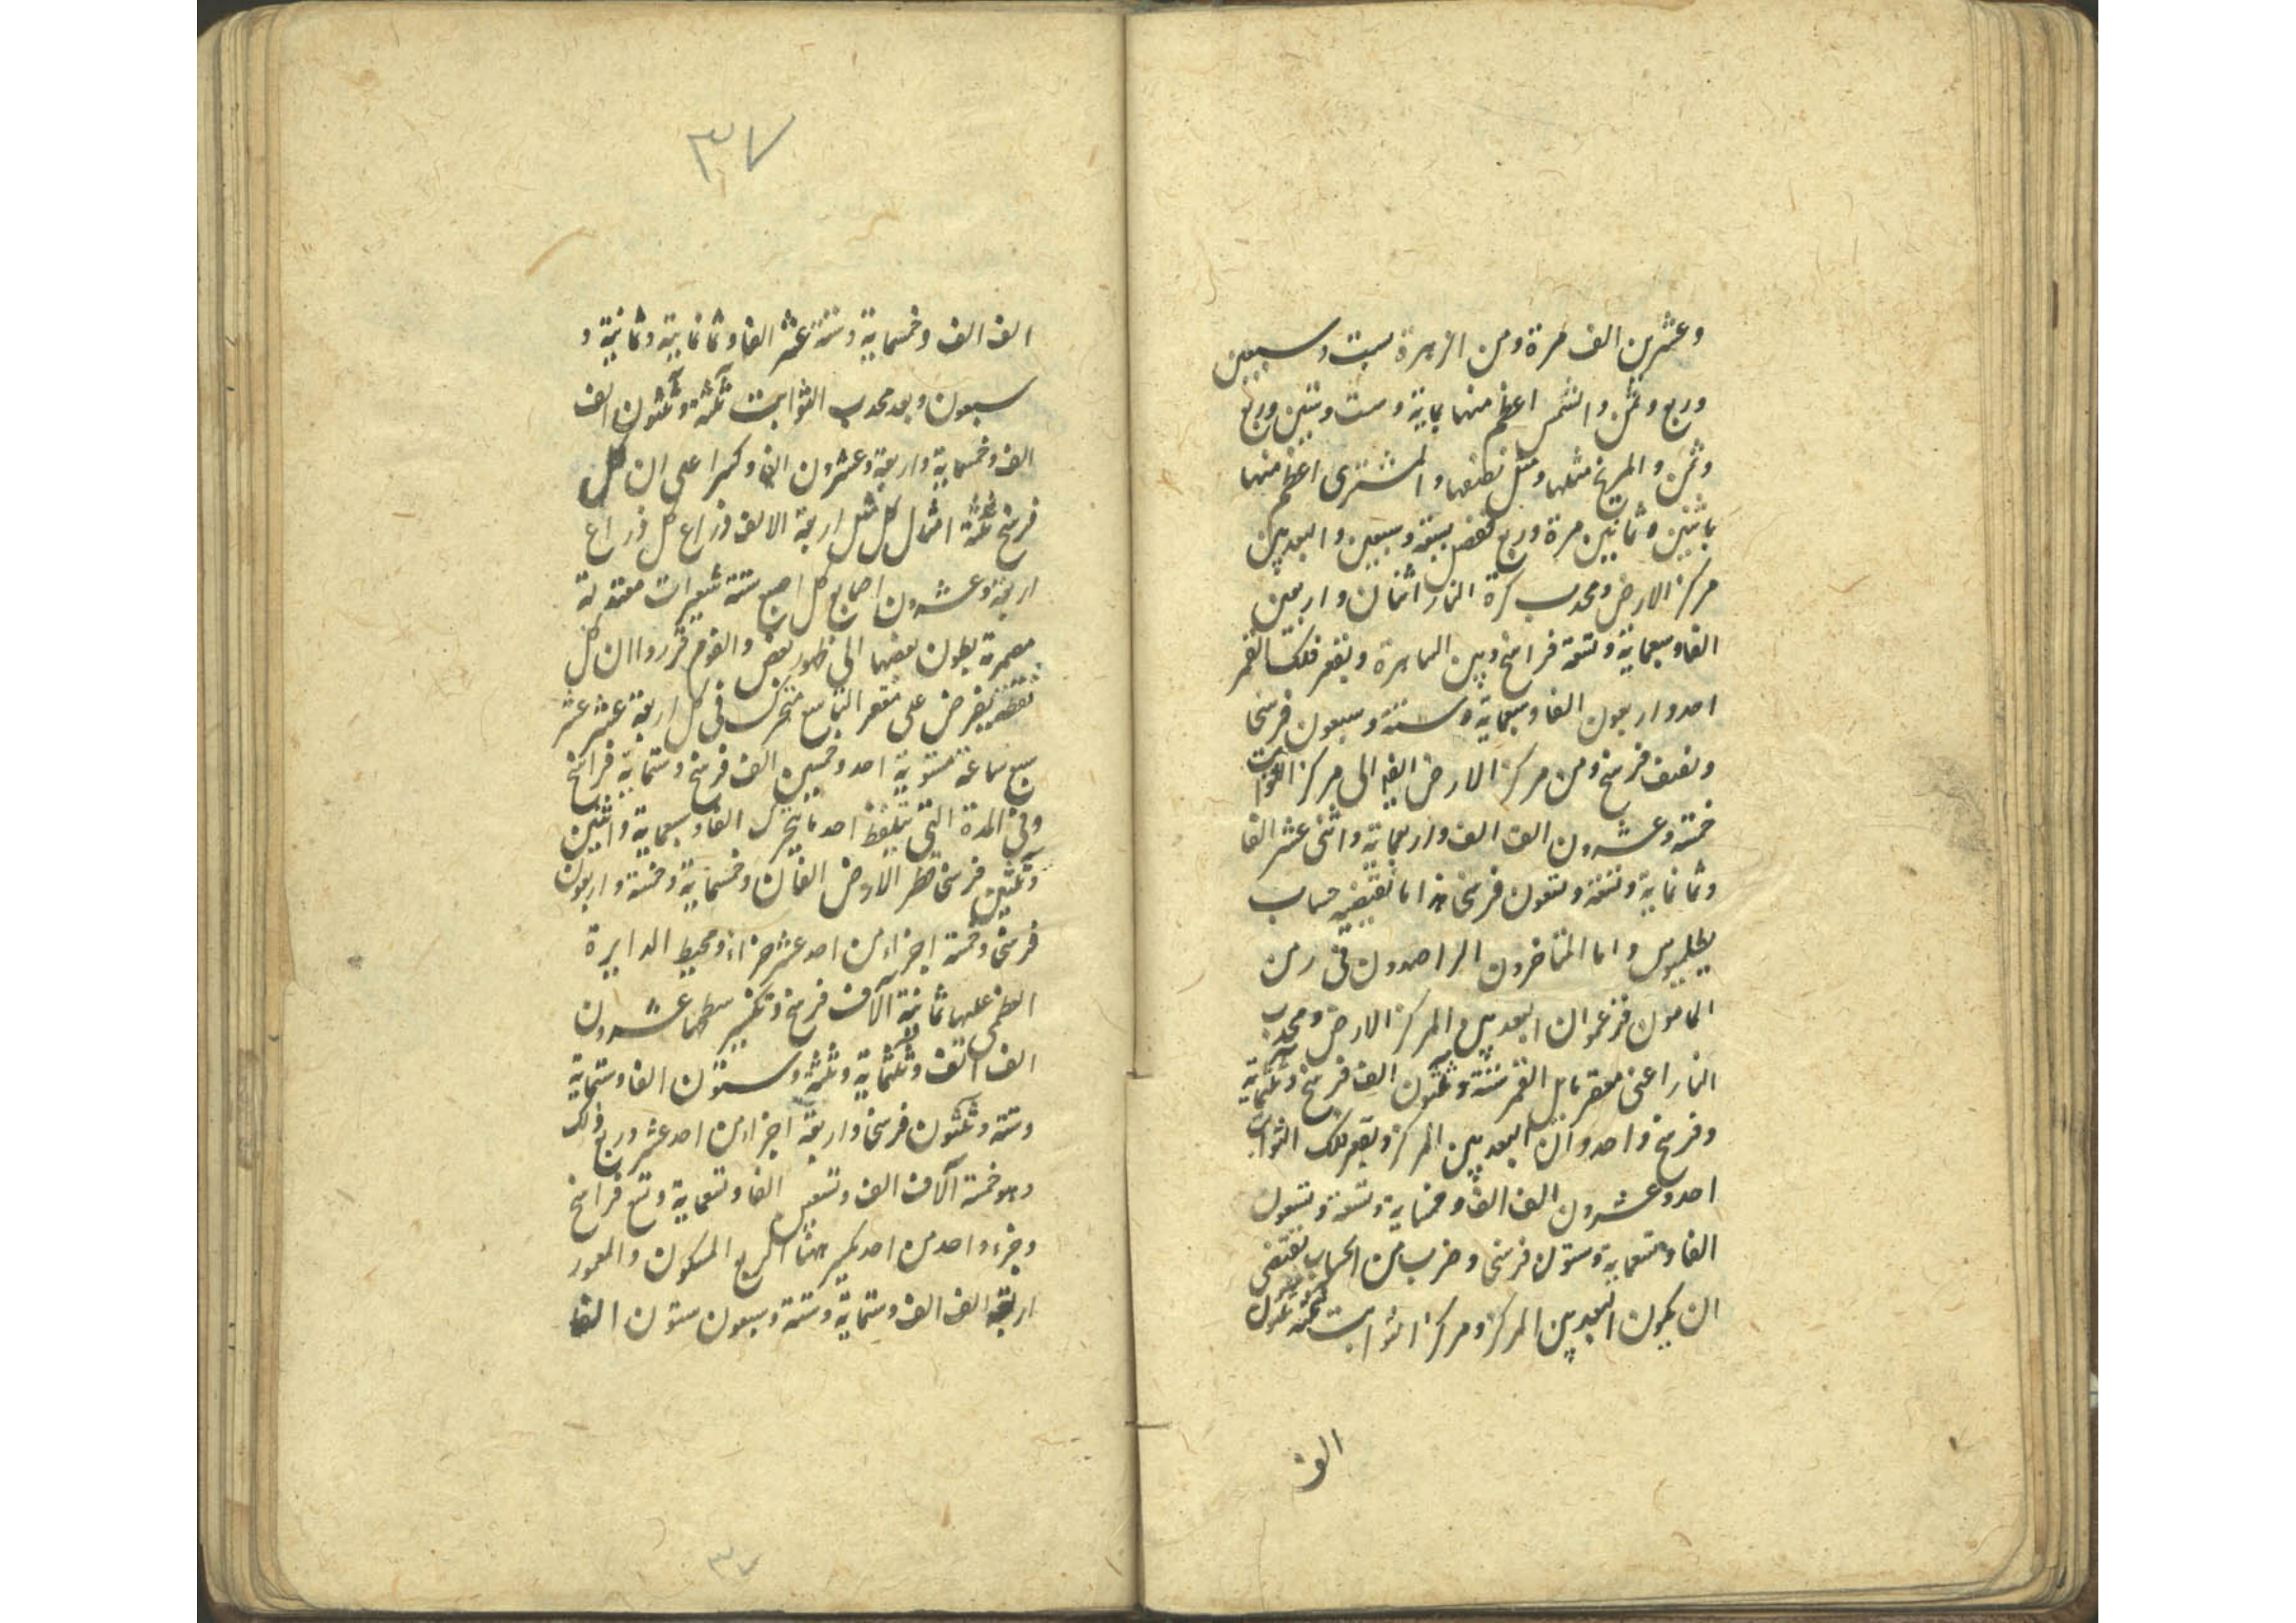 وعشرين الف مرة ومن الزهرة بست وسبعين
وربع وثمن والشمس اعظم منها بماية وست وستين وربع
وثمن والمريخ مثلها ومثل نصفها والمشترى اعظم منها
باثنين وثمانين مرة وربع تسعة وسبعين والبعد بين
مركز الارض ومحدب كرة النار اثنان واربعين
الفا وسبعماية وتسعة فراسخ وبين الساهرة ومقعر فلك القمر
احد واربعون الفا وسبعماية وستة وسبعون فرسخا
ونصف فرسخ ومن مركز الارض ايضا الى مركز الثوابت
خمسة وعشرون الف الف واربعماية واثنى عشر الفا
وثمانماية وتسعة وتسعون فرسخا هذا ما يقتضيه حساب
بطلميوس واما المتاخرون الراصدون فى زمن
المامون فزعموا ان البعد بين المركز الارض ومحدب
النار اعنى مقعر مايل القمر ستة وثلثون الف فرسخ وثلثماية
وفرسخ واحد وان البعد بين المركز ومقعر فلك الثوابت
احد وعشرون الف الف وخمسماية وتسعة وتسعون
الفا وتسعماية وستون فرسخا وضرب من الحساب يقتضى
ان يكون البعد بين المركز ومركز الثوابت
الف
٣٧
الف الف وخمسماية وستة عشر الفا وثمانماية وثمانية و
سبعون وبعد محدب الثوابت ثلثة وثلثون الف
الف وخمسماية واربعة وعشرون الفا وكسرا على ان كل
فرسخ ثلثة اميال كل ميل اربعة الالف ذراع كل ذراع
اربعة وعشرون اصابع كل اصبع ستة شعيرات معتدلة
مضمومة بطون بعضها الى ظهور بعض والقوم قرروا ان كل
نقطة يفرض على مقعر التاسع متحرك فى كل اربعة عشر عشر
سبع ساعة مستوية احد وخمسين الف فرسخ وستماية فراسخ
وفى المدة التى يتلفظ احد يتحرك الفا وسبعماية واثنين
وثلثين فرسخا قطر الارض الفان وخمسماية وخمسة واربعون
فرسخا وخمسة اجزاء من احد عشر جزاء ومحيط الدايرة
العظمى عليها ثمانية آلاف فرسخ وتكسير سطحها عشرون
الف الف وثلثماية وثلثة وستون الفا وستماية
وستة وثلثون فرسخا واربعة اجزاء من احد عشر وربع ذلك
وهو خمسة آلاف الف وتسعين الفا وتسعماية وتسع فراسخ
وجزء واحد من احد الربع المسكون والمعمور
اربعة الف الف وستماية وستة وسبعون ستون الفا
٣٧